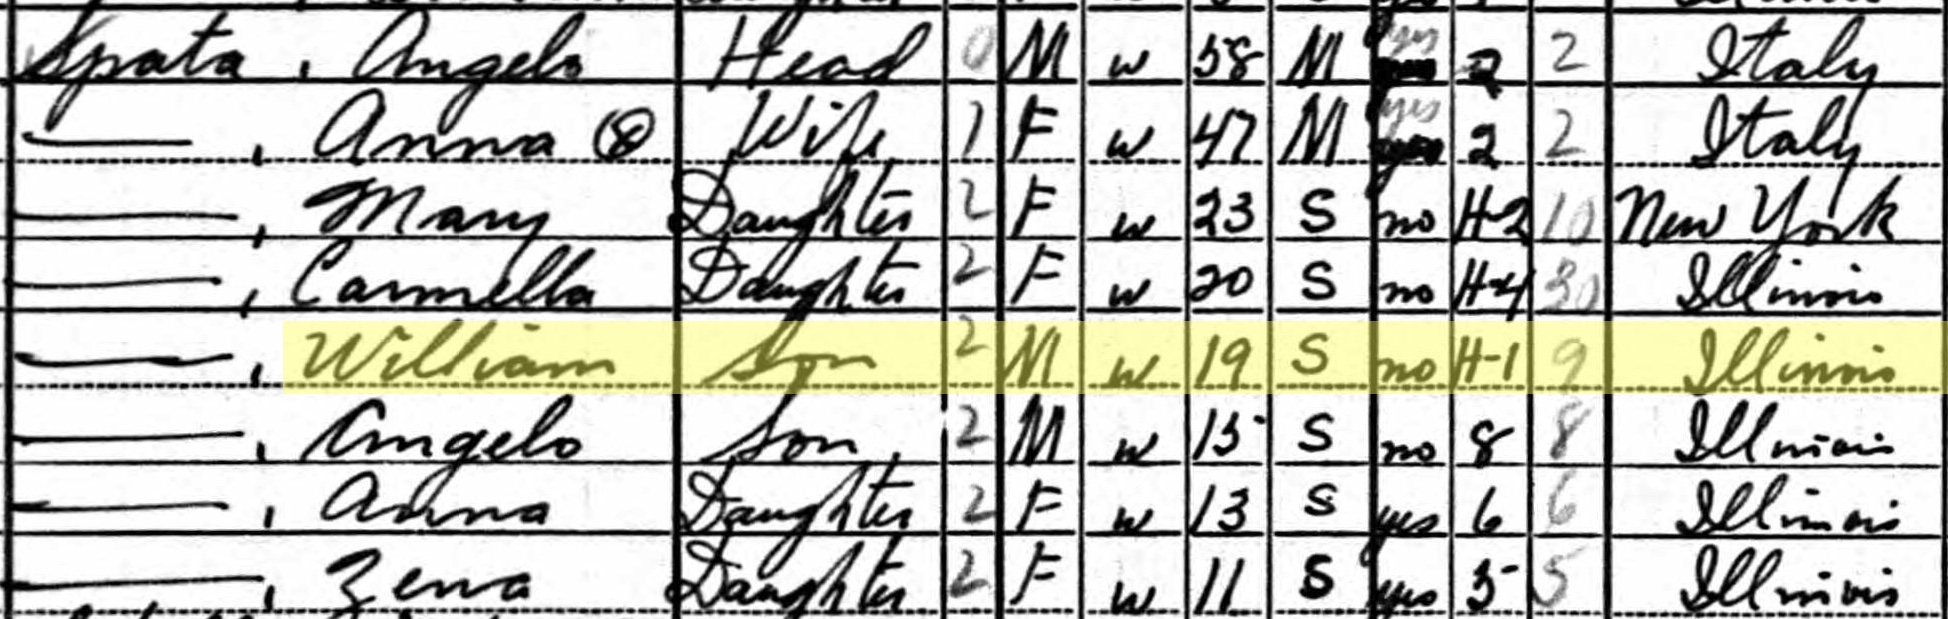 Spata, Angelo Head 0 M w 58 M yes 2 2 Italy
—, Anna ⊗ Wife 1 F w 47 M yes 2 2 Italy
—, Mary Daughter 2 F w 23 S no H-2 10 New York
—, Carmella Daughter 2 F w 20 S no H-4 30 Illinois
—, William Son 2 M w 19 S no H-1 9 Illinois
—, Angelo Son 2 M w 15 S no 8 8 Illinois
—, Anna Daughter 2 F w 13 S yes 6 6 Illinois
—, Zena Daughter 2 F w 11 S yes 5 5 Illinois